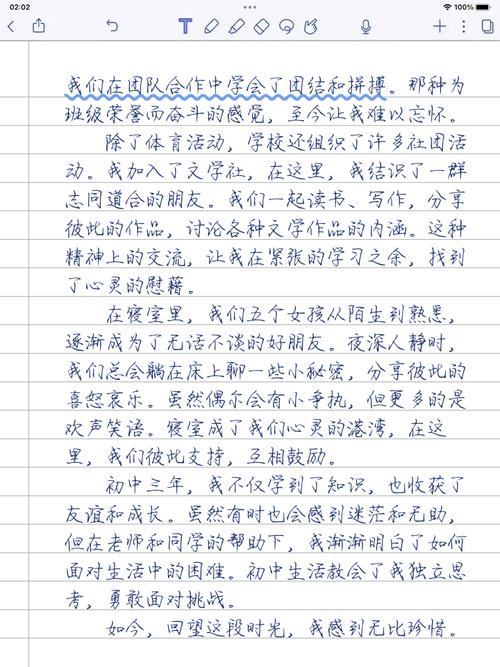 02:02
100%
我们在团队合作中学会了团结和拼搏。那种为
班级荣誉而奋斗的感觉，至今让我难以忘怀。
除了体育活动，学校还组织了许多社团活
动。我加入了文学社，在这里，我结识了一群
志同道合的朋友。我们一起读书、写作，分享
彼此的作品，讨论各种文学作品的内涵。这种
精神上的交流，让我在紧张的学习之余，找到
了心灵的慰藉。
在寝室里，我们五个女孩从陌生到熟悉，
逐渐成为了无话不谈的好朋友。夜深人静时，
我们总会躺在床上聊一些小秘密，分享彼此的
喜怒哀乐。虽然偶尔会有小争执，但更多的是
欢声笑语。寝室成了我们心灵的港湾，在这
里，我们彼此支持，互相鼓励。
初中三年，我不仅学到了知识，也收获了
友谊和成长。虽然有时也会感到迷茫和无助，
但在老师和同学的帮助下，我渐渐明白了如何
面对生活中的困难。初中生活教会了我独立思
考，勇敢面对挑战。
如今，回望这段时光，我感到无比珍惜。